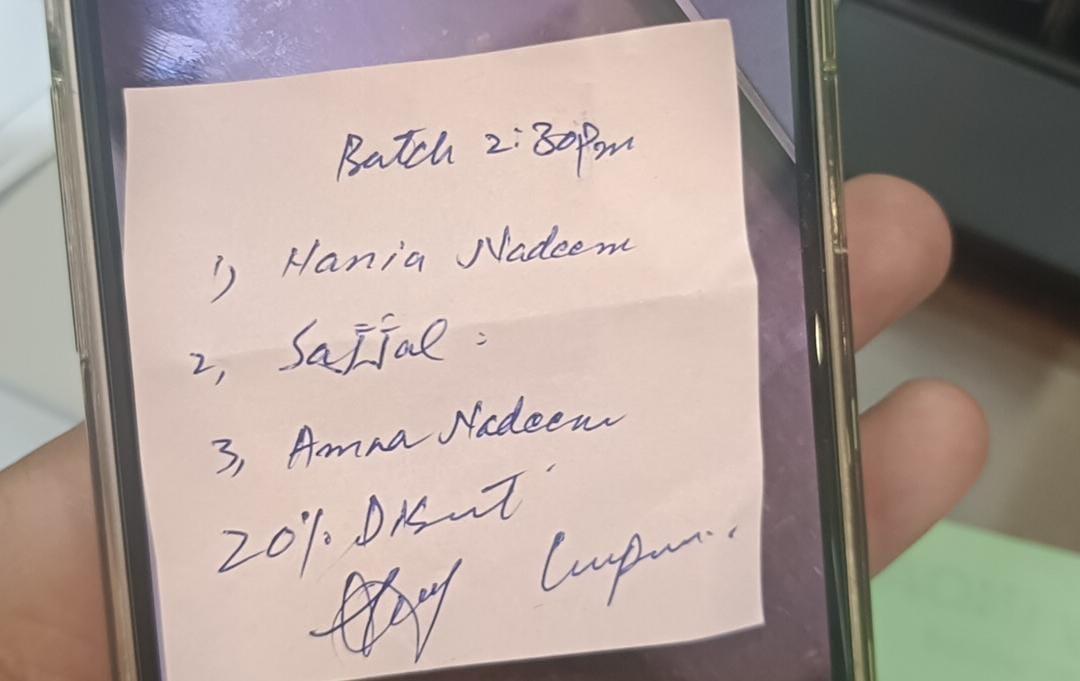 Batch 2:30Pm
1, Hania Nadeem
2, Sajjal :
3, Amna Nadeem
20% Disut